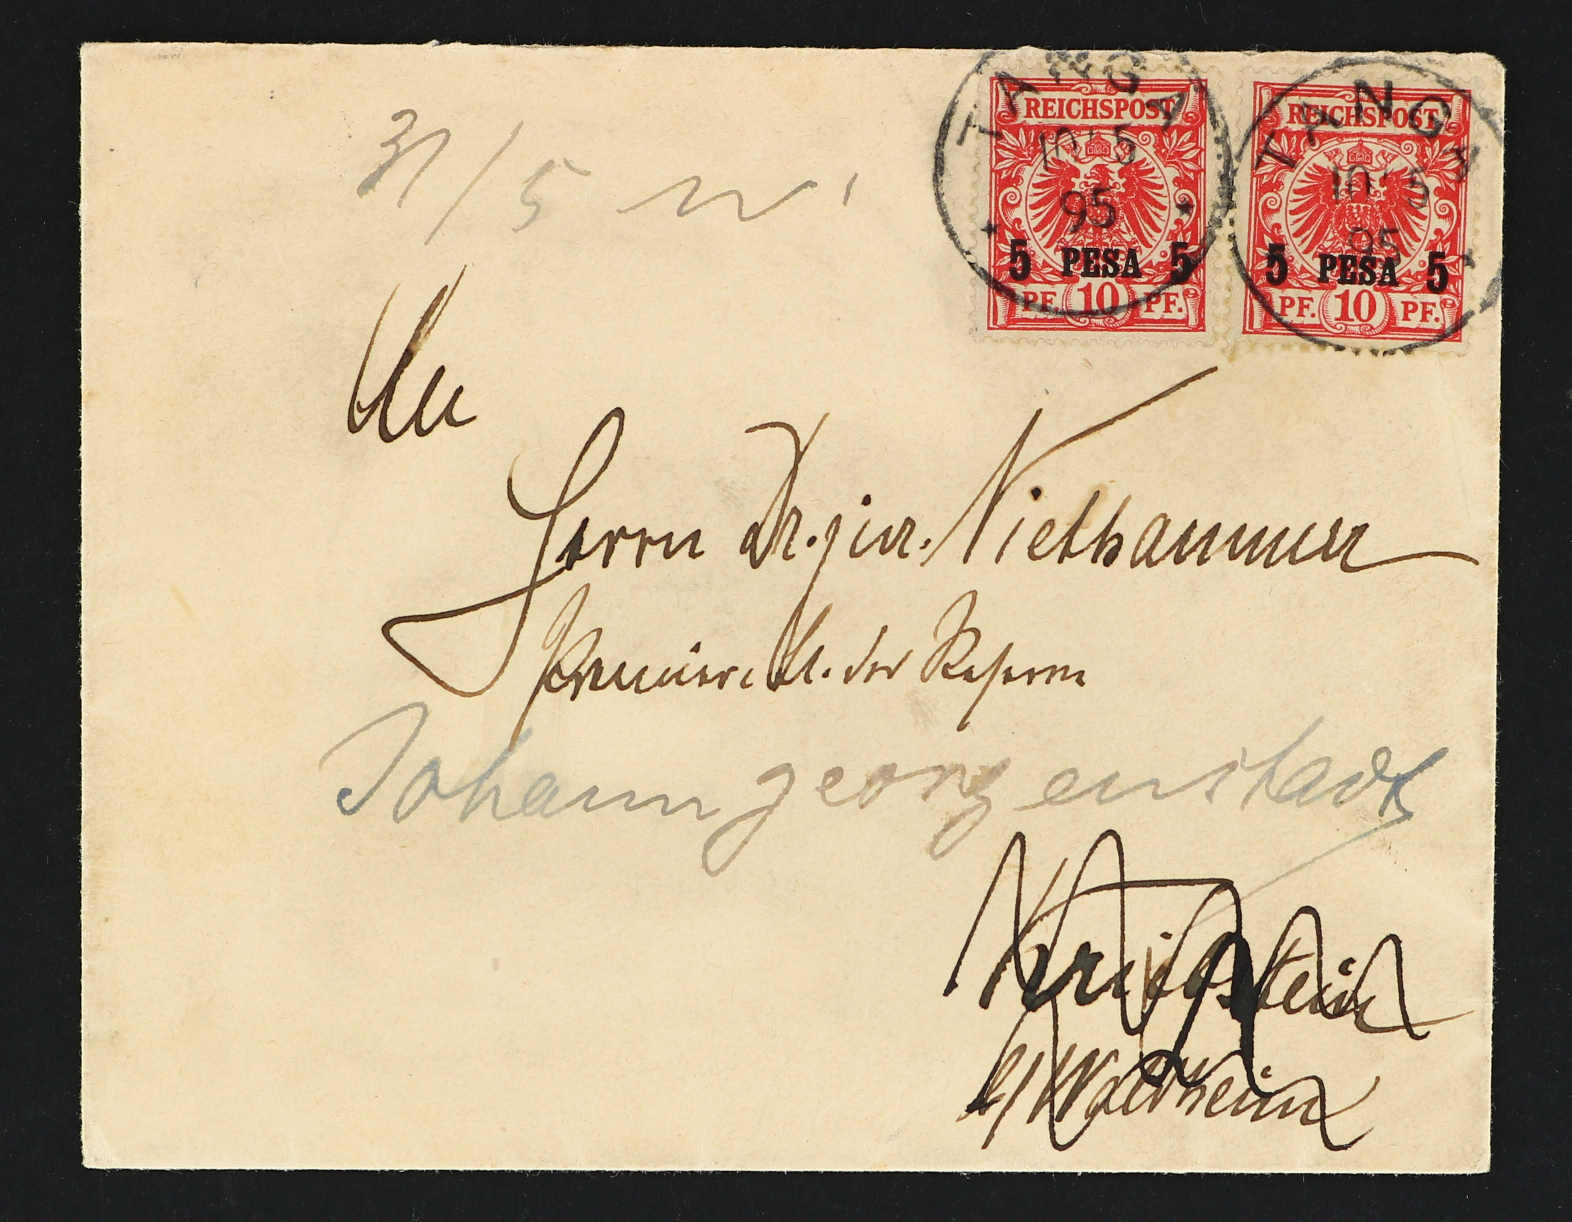 TANGA
10/5
95
REICHSPOST
5 PESA 5
PF. 10 PF.
TANGA
10/5
95
REICHSPOST
5 PESA 5
PF. 10 PF.
31/5
An
Herrn Dr. jur. Niethammer
Premier Lt. der Reserve
Johanngeorgenstadt
Kriebstein
b/ Waldheim